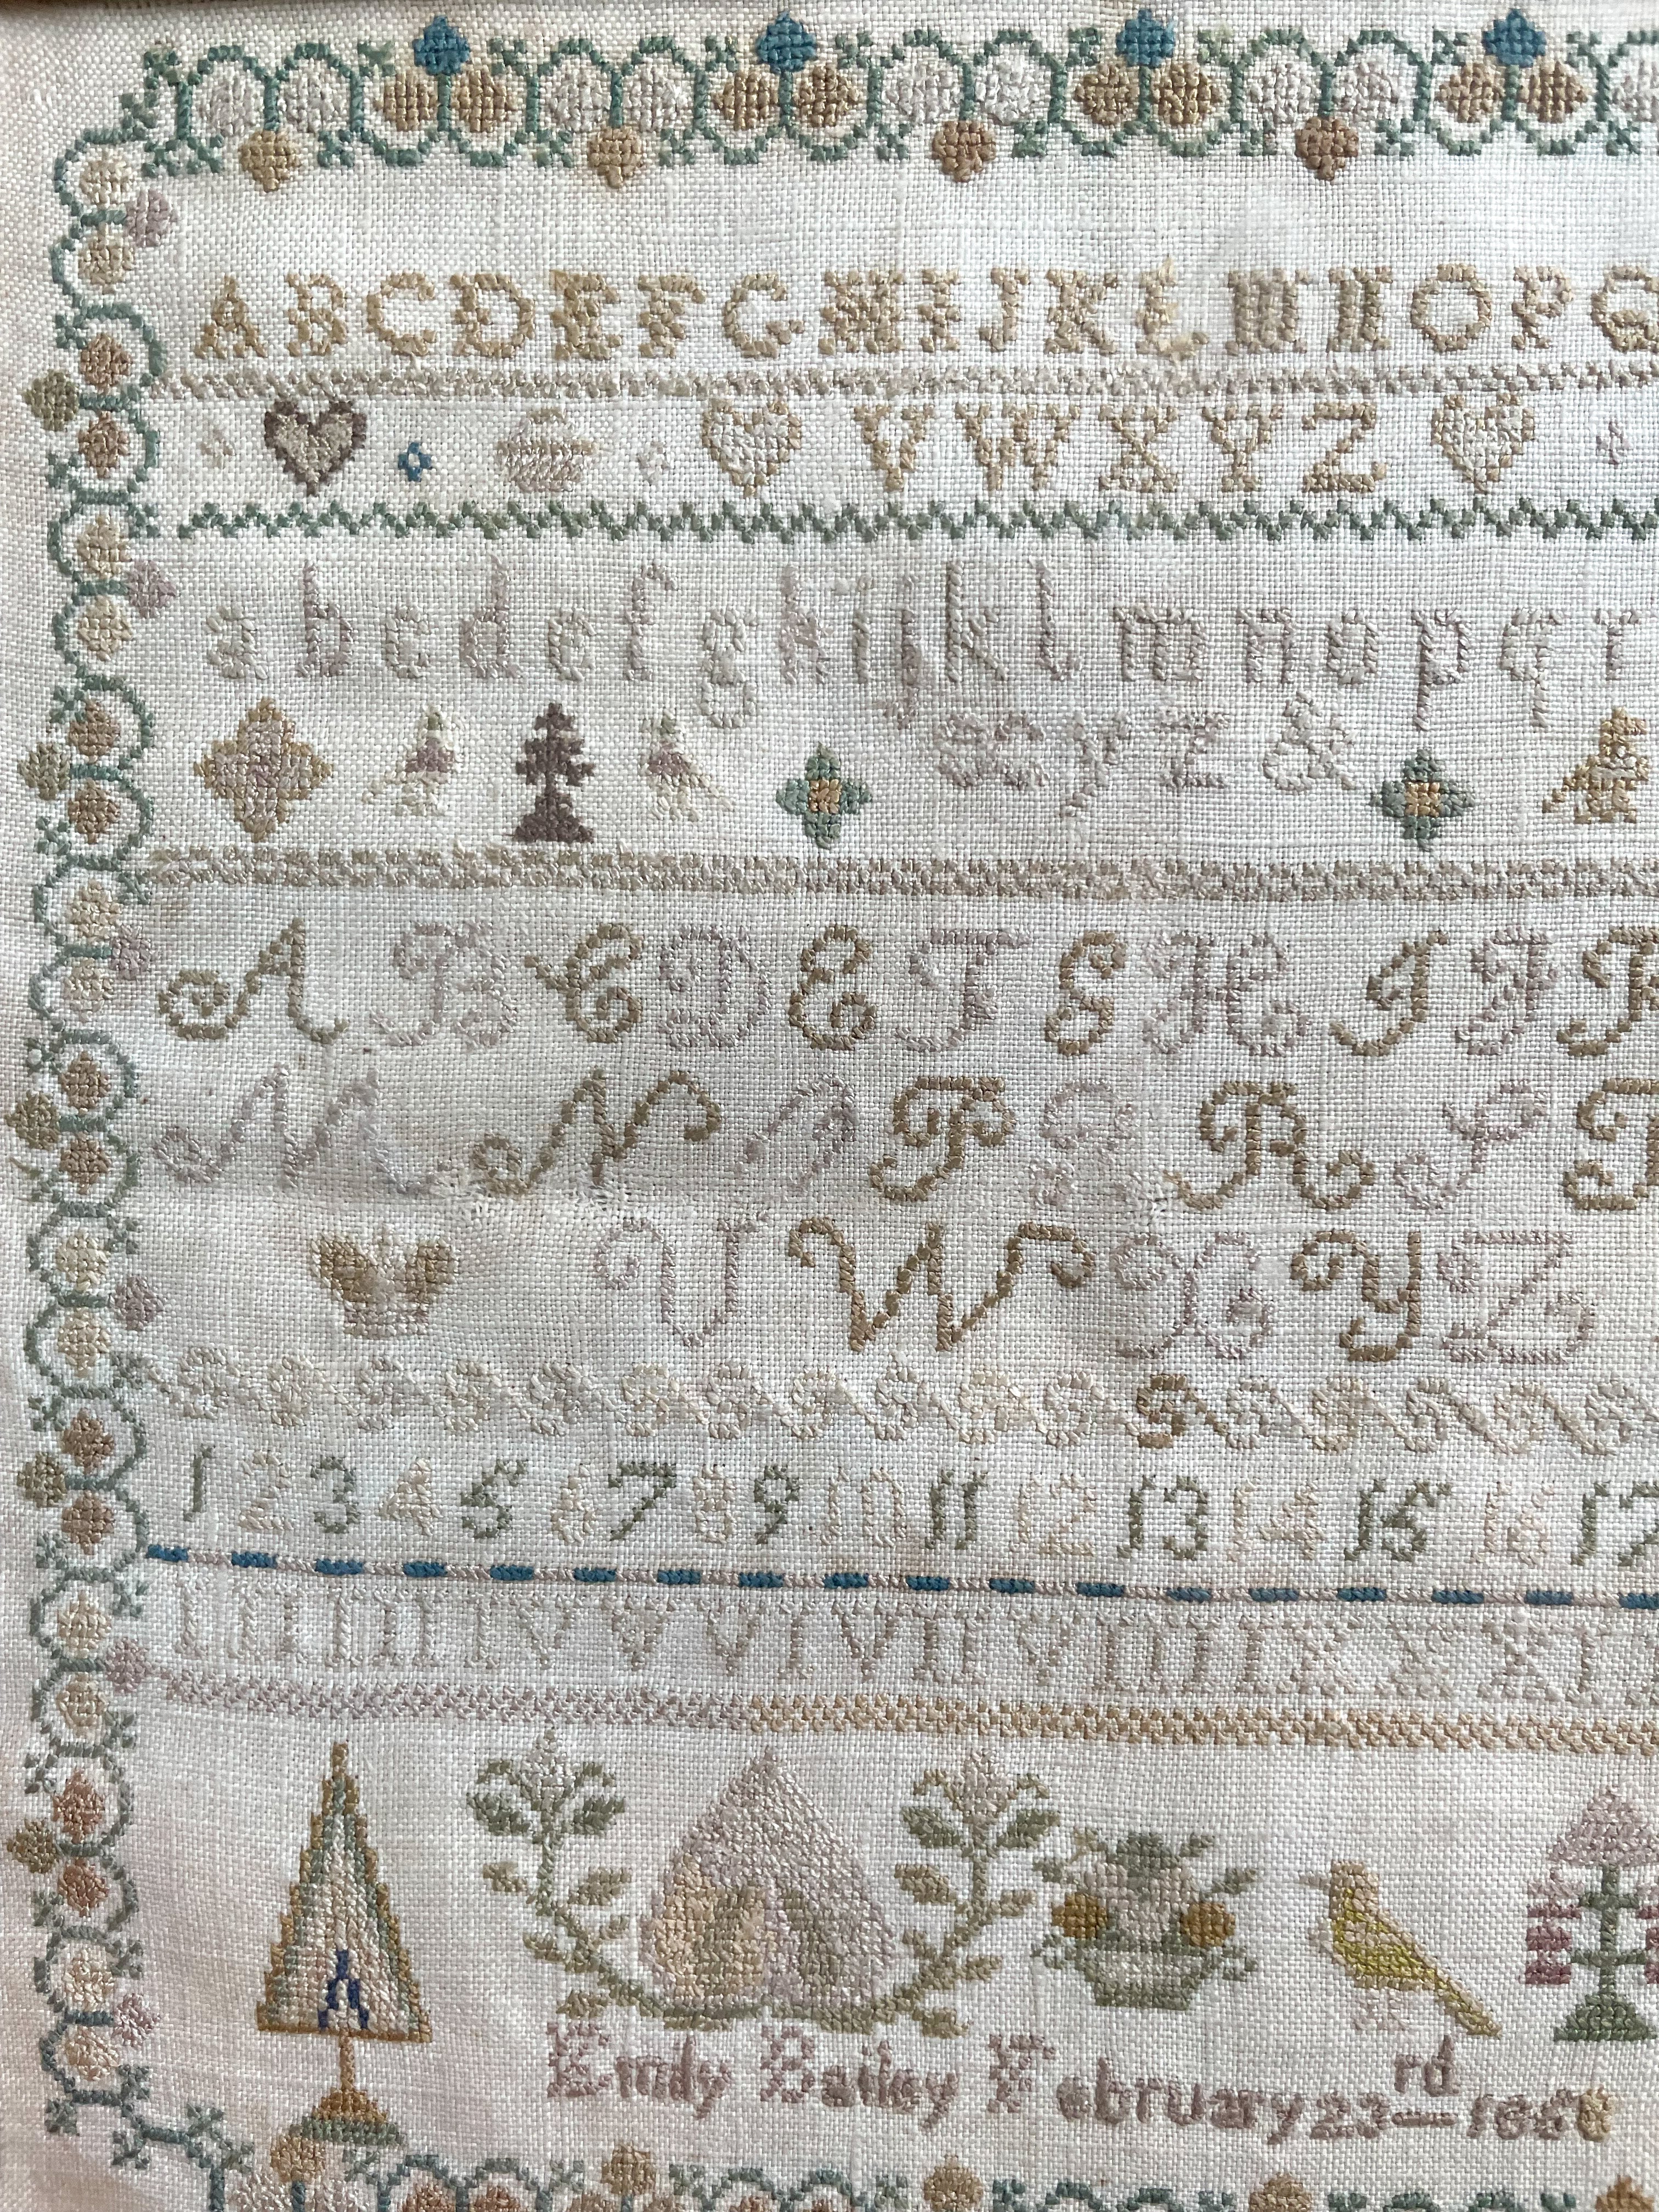 A B C D E F G H I J K L M N O P Q
V W X Y Z
a b c d e f g h i j k l m n o p q r
x y z &
A B C D E F G H I J K
M N O P Q R S T
U W X Y Z
1 2 3 4 5 6 7 8 9 10 11 12 13 14 15 16 17
I II III IV V VI VII VIII IX X XI
Emily Bailey February 23rd